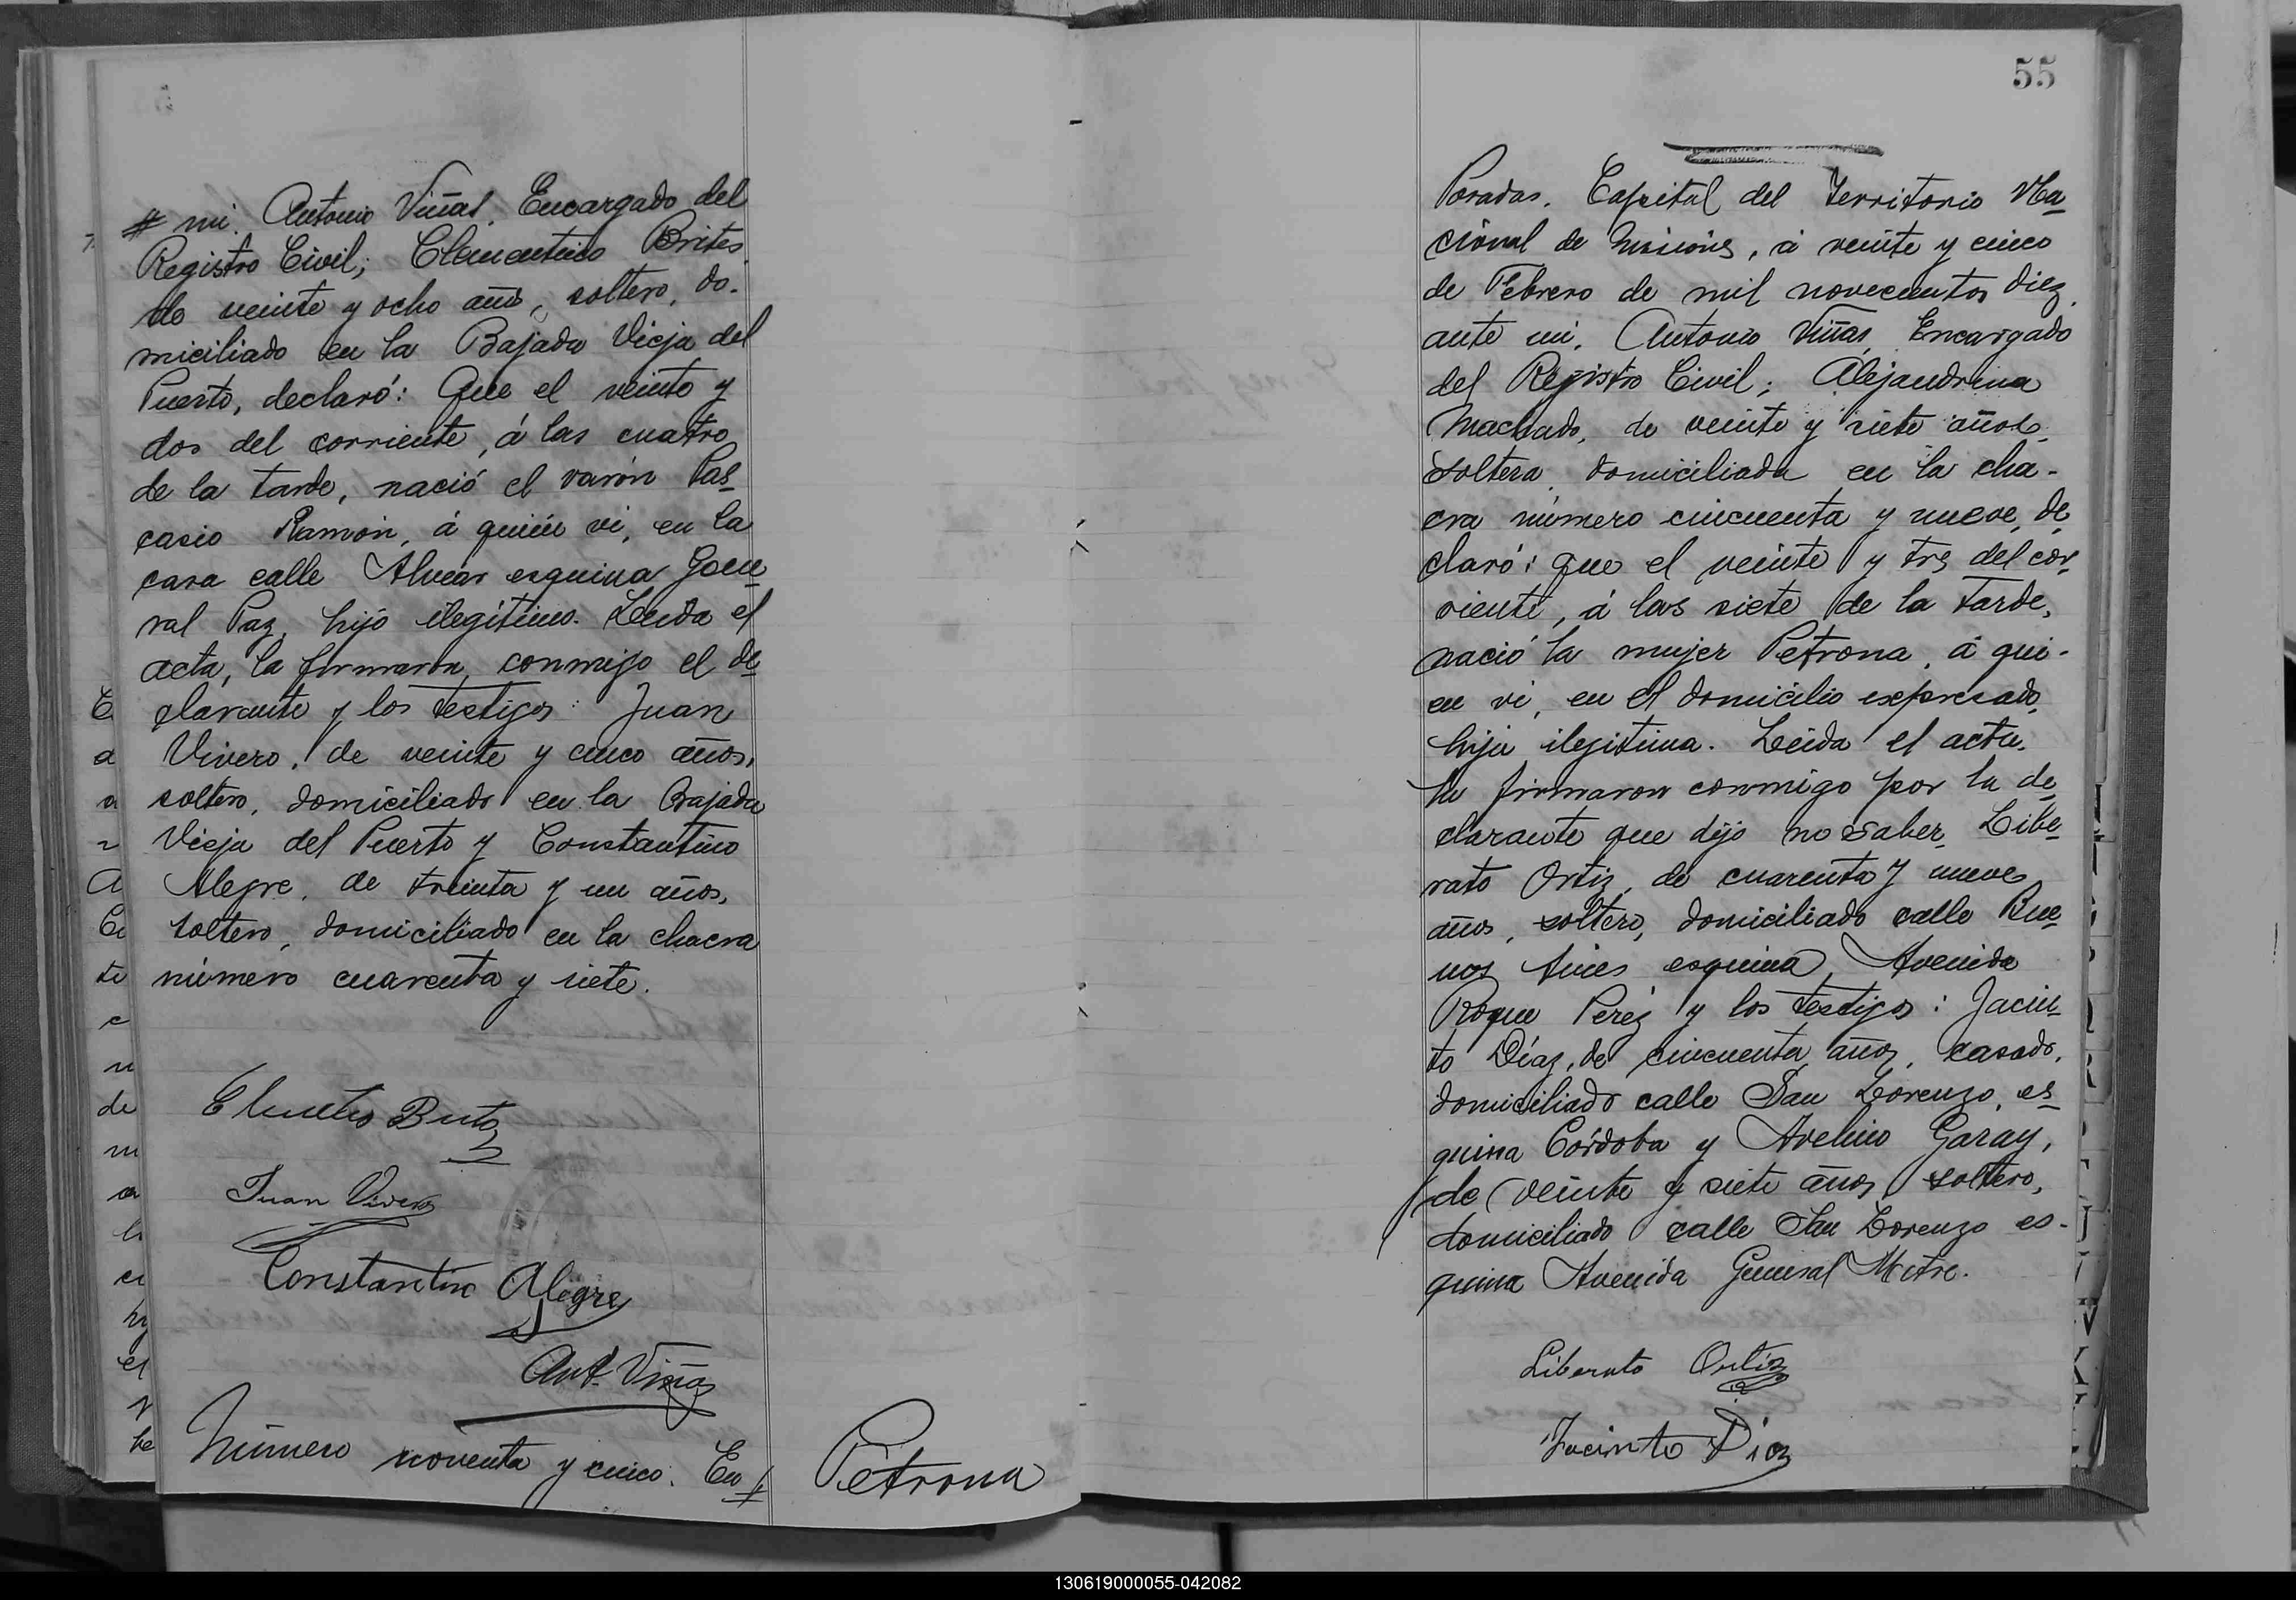 # mi. Antonio Viñas, Encargado del
Registro Civil; Clementino Brites,
de veinte y ocho años, soltero, do-
miciliado en la Bajada Vieja del
Puerto, declaró: Que el veinte y
dos del corriente, á las cuatro
de la tarde, nació el varón Pas-
casio Ramón, á quién vi, en la
casa calle Alvear esquina Gene-
ral Paz, hijo ilegítimo. Leida el
acta, la firmaron conmigo el de-
clarante y los testigos: Juan
Vivero, de veinte y cinco años,
soltero, domiciliado en la Bajada
Vieja del Puerto y Constantino
Alegre, de treinta y un años,
soltero, domiciliado en la chacra
número cuarenta y siete.
Juan Vivero
Constantino Alegre
Ant. Viñas
Número noventa y cinco. En #
Petrona
55
Posadas, Capital del Territorio Na-
cional de Misiones, á veinte y cinco
de Febrero de mil novecientos diez,
ante mi, Antonio Viñas, Encargado
del Registro Civil; Alejandrina
Machado, de veinte y siete años,
soltera, domiciliada en la cha-
cra número cincuenta y nueve, de-
claró: que el veinte y tres del cor-
riente, á las siete de la tarde,
nació la mujer Petrona, á qui-
en vi, en el domicilio expresado,
hija ilegítima. Leida el acta,
la firmaron conmigo por la de-
clarante que dijo no saber, Libe-
rato Ortiz, de cuarenta y nueve
años, soltero, domiciliado calle Bue-
nos Aires esquina Avenida
Roque Peréz y los testigos: Jacin-
to Díaz, de cincuenta años, casado,
domiciliado calle San Lorenzo, es-
quina Córdoba y Avelino Garay,
de veinte y siete años, soltero,
domiciliado calle San Lorenzo es-
quina Avenida General Mitre.
Liberato Ortiz
Jacinto Diaz
130619000055-042082